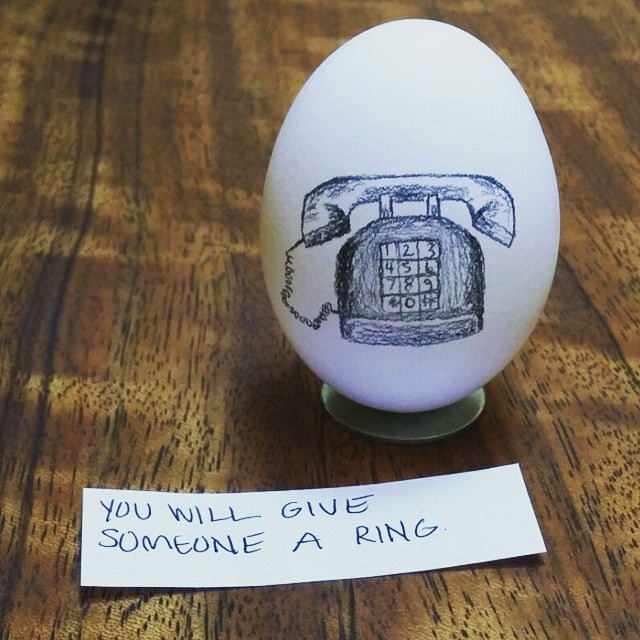 2 3
4 5 6
7 8 9
* 0 #
YOU WILL GIVE
SOMEONE A RING.